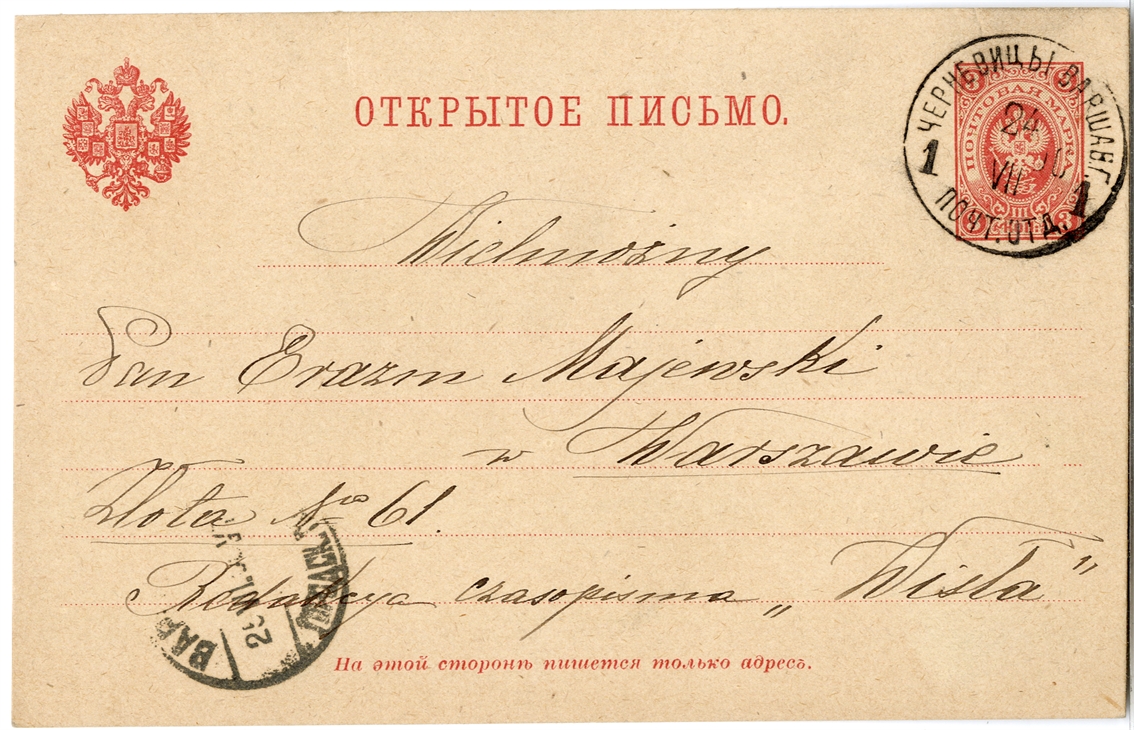 ОТКРЫТОЕ ПИСЬМО.
ЧЕРНЕВИЦЫ ВАРШАВ.Г.
24
VII
1 1
ПОЧТ. ОТД.
ПОЧТОВАЯ МАРКА
3 3
КОП.
Wielmożny
Pan Erazm Majewski
w Warszawie
Złota No 61.
Redakcya czasopisma „Wisła"
На этой сторонѣ пишется только адресъ.